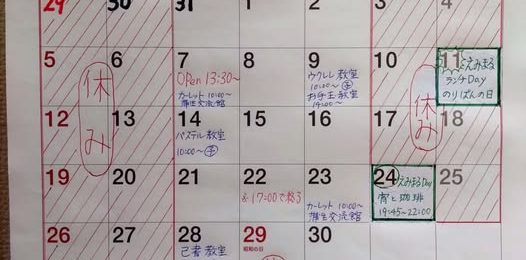 29 30 31 1 2 3 4
5 6 7 8 9 10 11
Open 13:30~
カーレット 10:00~
蒲生交流館
ウクレレ教室
10:00~
お手玉教室
14:00~
えみまる
ランチDay
のりぱんの日
休み
休み
12 13 14 15 16 17 18
パステル教室
10:00~
19 20 21 22 23 24 25
※17:00で終了
カーレット 10:00~
蒲生交流館
えみまるDay
宵と珈琲
19:45~22:00
26 27 28 29 30
教室
昭和の日